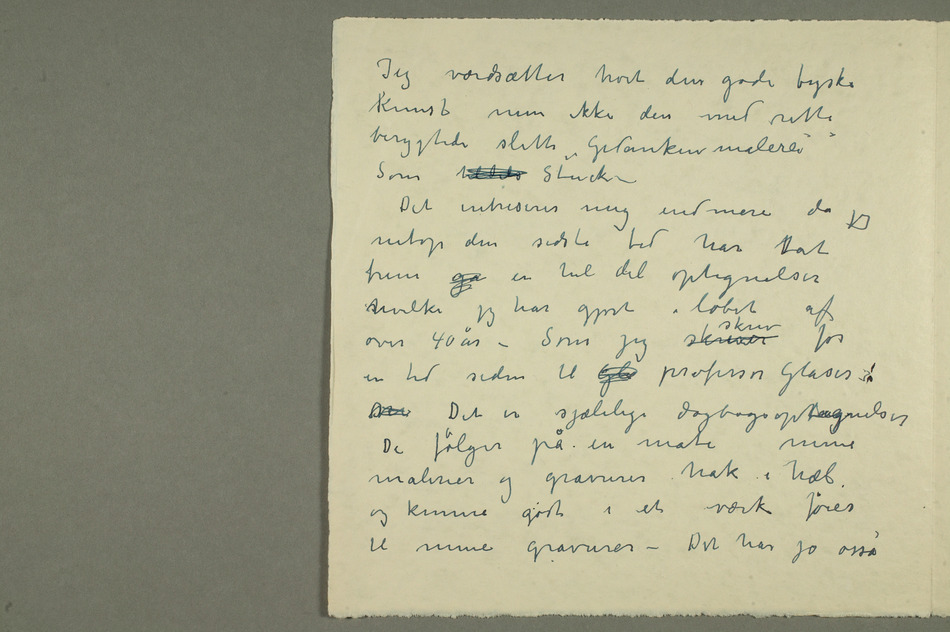 Jeg værdsætter høit den gode tyske
Kunst men ikke den med rette
berygtede slette „Gedankenmalerei“
Som Stuck –
Det intreserer mig endmere da jeg
netop den sidste tid har tat
frem en hel del optegnelser
hvilke jeg har gjort i løbet af
over 40 år – Som jeg skrev for
en tid siden til professor Glaser:
Det er sjælelige dagbogsoptegnelser
De følger på en måte mine
malerier og gravurer hak i hæl.
og kunne godt i et værk føies
til mine gravurer – Det har jo også